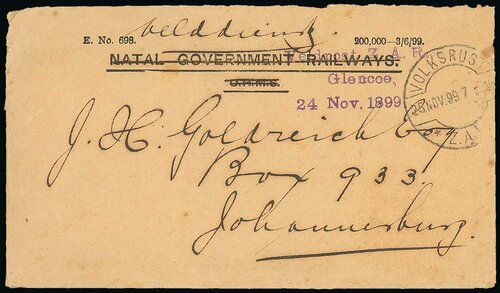 velddienst
E. No. 698. 200,000—3/6/99.
NATAL GOVERNMENT RAILWAYS.
Veldpost Z.A.R.
O.H.M.S.
Glencoe.
24 Nov. 1899
VOLKSRUST
25 NOV. 99. 7
Z.A.
J. H. Goldreich Esq
Box 933.
Johannesburg.